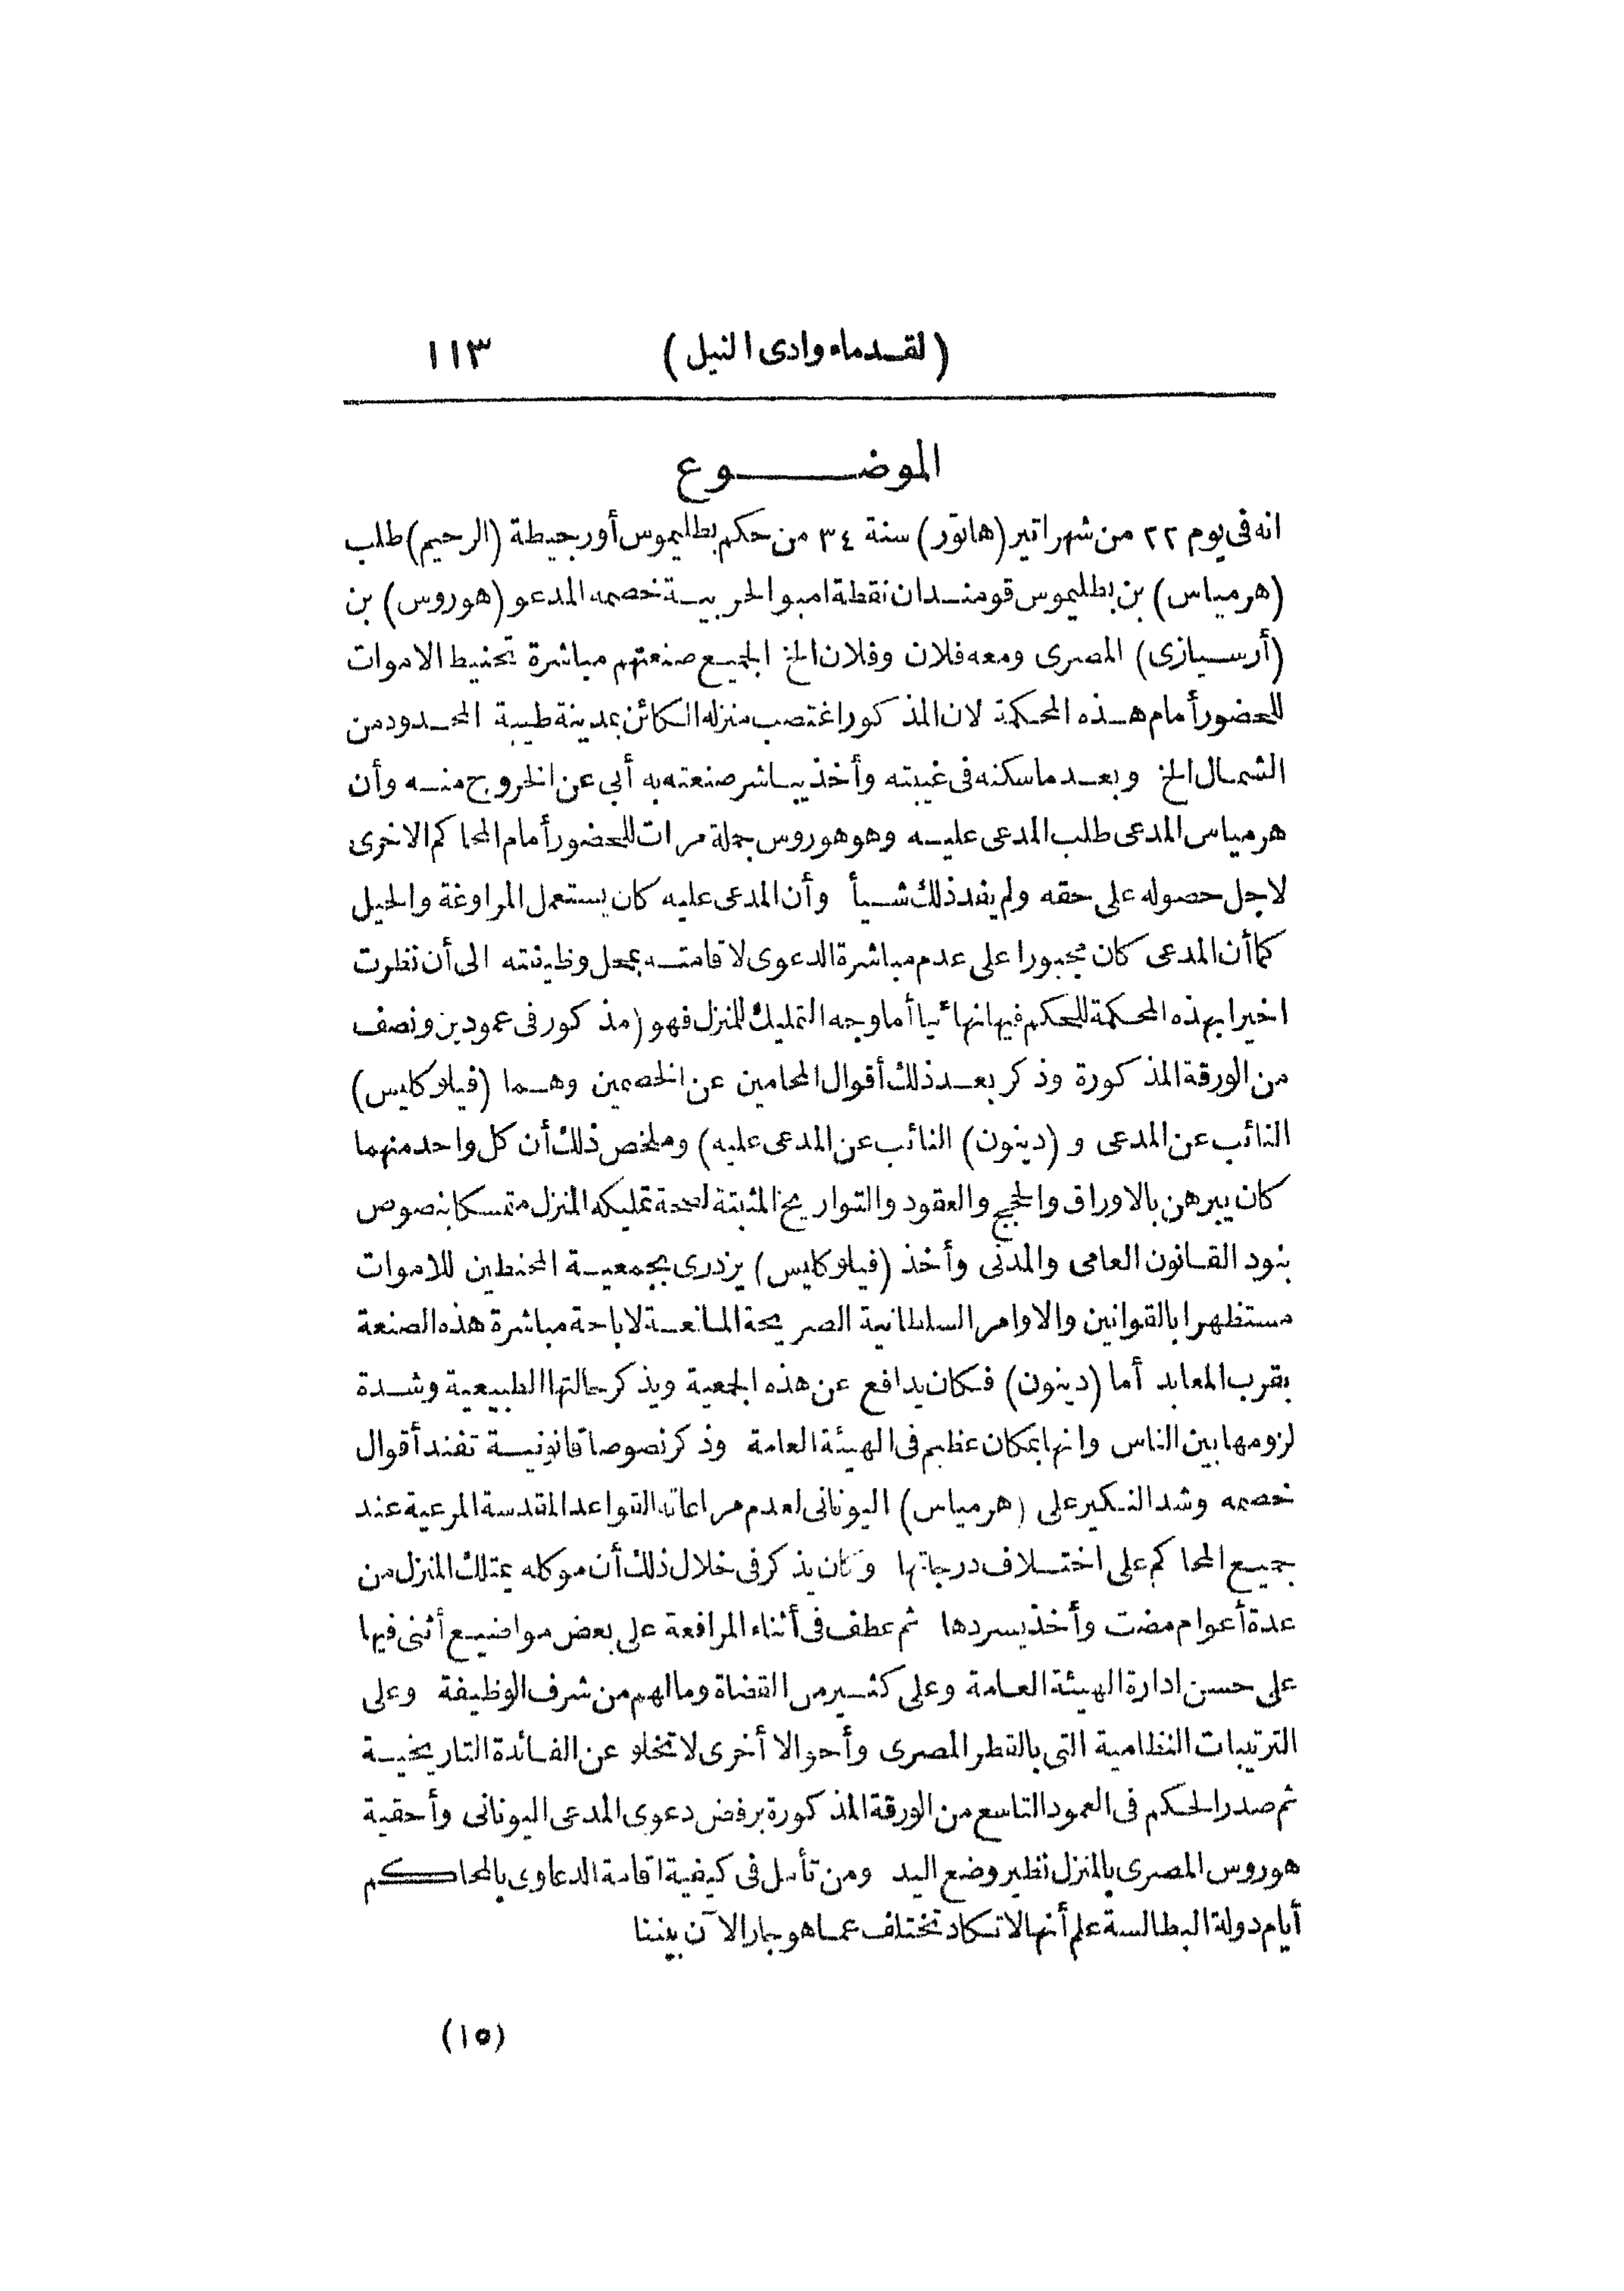 (لقدماء وادى النيل) ١١٣
الموضوع
انه فى يوم ٢٢ من شهر اتير (هاتور) سنة ٣٤ من حكم بطليموس أورجيطة (الرحيم) طلب
(هرمياس) بن بطليموس قومندان نقطة امبو الحربية خصمه المدعو (هوروس) بن
(أرسيازى) المصرى ومعه فلان وفلان الخ الجميع صنعتهم مباشرة تحنيط الاموات
للحضور أمام هذه المحكمة لان المذكور اغتصب منزله الكائن بمدينة طيبة المحدود من
الشمال الخ وبعد ما سكنه فى غيبته وأخذ يباشر صنعته به أبى عن الخروج منه وأن
هرمياس المدعى طلب المدعى عليه وهو هوروس جملة مرات للحضور أمام المحاكم الاخرى
لاجل حصوله على حقه ولم يفد ذلك شيأ وأن المدعى عليه كان يستعمل المراوغة والحيل
كما أن المدعى كان مجبورا على عدم مباشرة الدعوى لاقامته بمحل وظيفته الى أن نظرت
اخيرا بهذه المحكمة للحكم فيها نهائيا أما وجه التمليك للمنزل فهو (مذكور فى عمودين ونصف
من الورقة المذكورة وذكر بعد ذلك أقوال المحامين عن الخصمين وهما (فيلوكليس)
النائب عن المدعى و (دينون) النائب عن المدعى عليه) وملخص ذلك أن كل واحد منهما
كان يبرهن بالاوراق والحجج والعقود والتواريخ المثبتة لصحة تمليكه المنزل متمسكا بنصوص
بنود القانون العامى والمدنى وأخذ (فيلوكليس) يزدرى بجمعية المحنطين للاموات
مستظهرا بالقوانين والاوامر السلطانية الصريحة المانعة لاباحة مباشرة هذه الصنعة
بقرب المعابد أما (دينون) فكان يدافع عن هذه الجمعية ويذكر حالتها الطبيعية وشدة
لزومها بين الناس وانها بمكان عظيم فى الهيئة العامة وذكر نصوصا قانونية تفند أقوال
خصمه وشد النكير على (هرمياس) اليونانى لعدم مراعاته القواعد المقدسة المرعية عند
جميع المحاكم على اختلاف درجاتها وكان يذكر فى خلال ذلك أن موكله يمتلك المنزل من
عدة أعوام مضت وأخذ يسردها ثم عطف فى أثناء المرافعة على بعض مواضيع أثنى فيها
على حسن ادارة الهيئة العامة وعلى كثير من القضاة وما لهم من شرف الوظيفة وعلى
الترتيبات النظامية التى بالقطر المصرى وأحوالا أخرى لا تخلو عن الفائدة التاريخية
ثم صدر الحكم فى العمود التاسع من الورقة المذكورة برفض دعوى المدعى اليونانى وأحقية
هوروس المصرى بالمنزل نظير وضع اليد ومن تأمل فى كيفية اقامة الدعاوى بالمحاكم
أيام دولة البطالسة علم أنها لا تكاد تختلف عما هو جار الآن بيننا
(١٥)